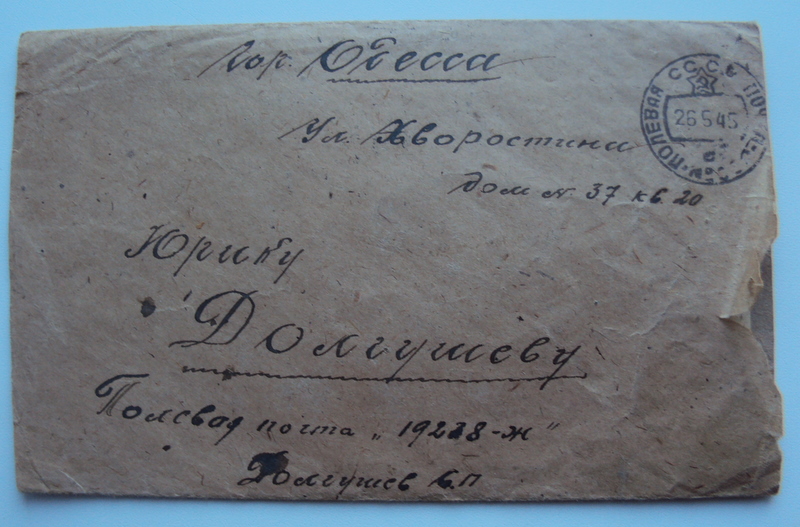 Гор. Одесса
СССР ПОЛЕВАЯ ПОЧТА
26 5 45
Ул. Хворостина
дом № 37 кв. 20
Юрику
Долгушеву
Полевая почта „19238-ж"
Долгушев Б.П